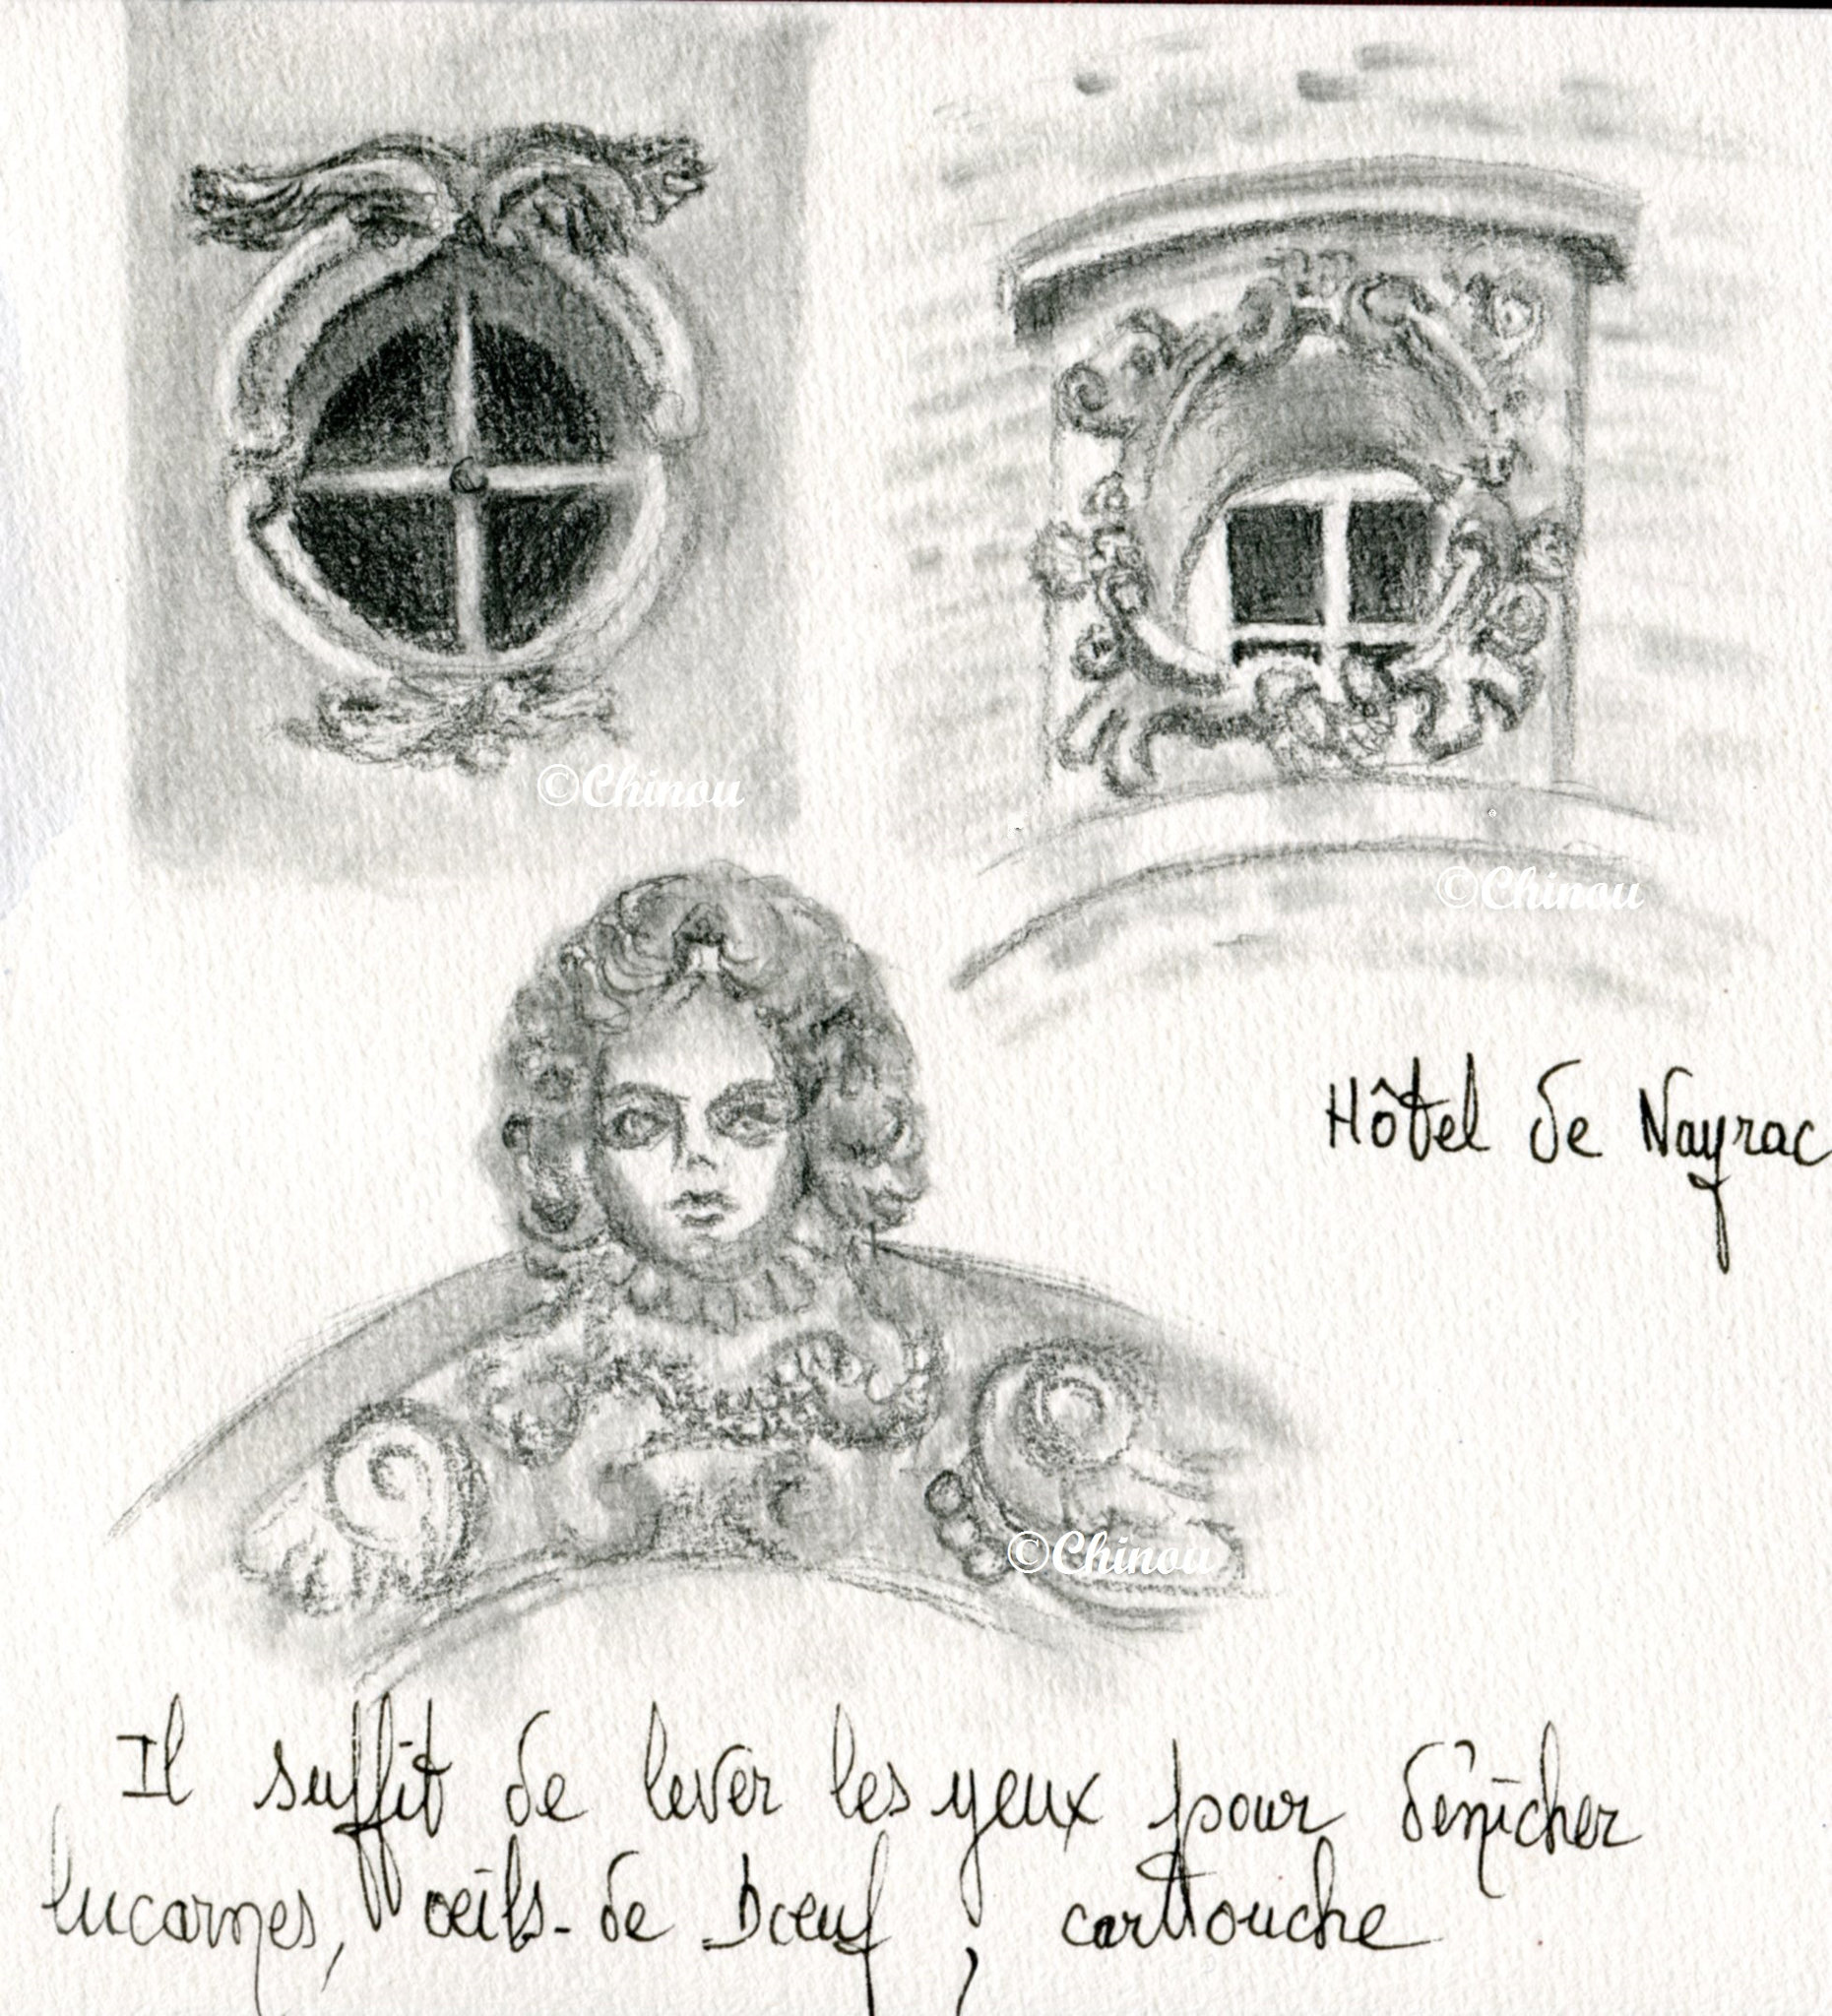 ©Chinou
©Chinou
Hôtel de Nayrac
©Chinou
Il suffit de lever les yeux pour dénicher
lucarnes, oeils-de boeuf, carttouche